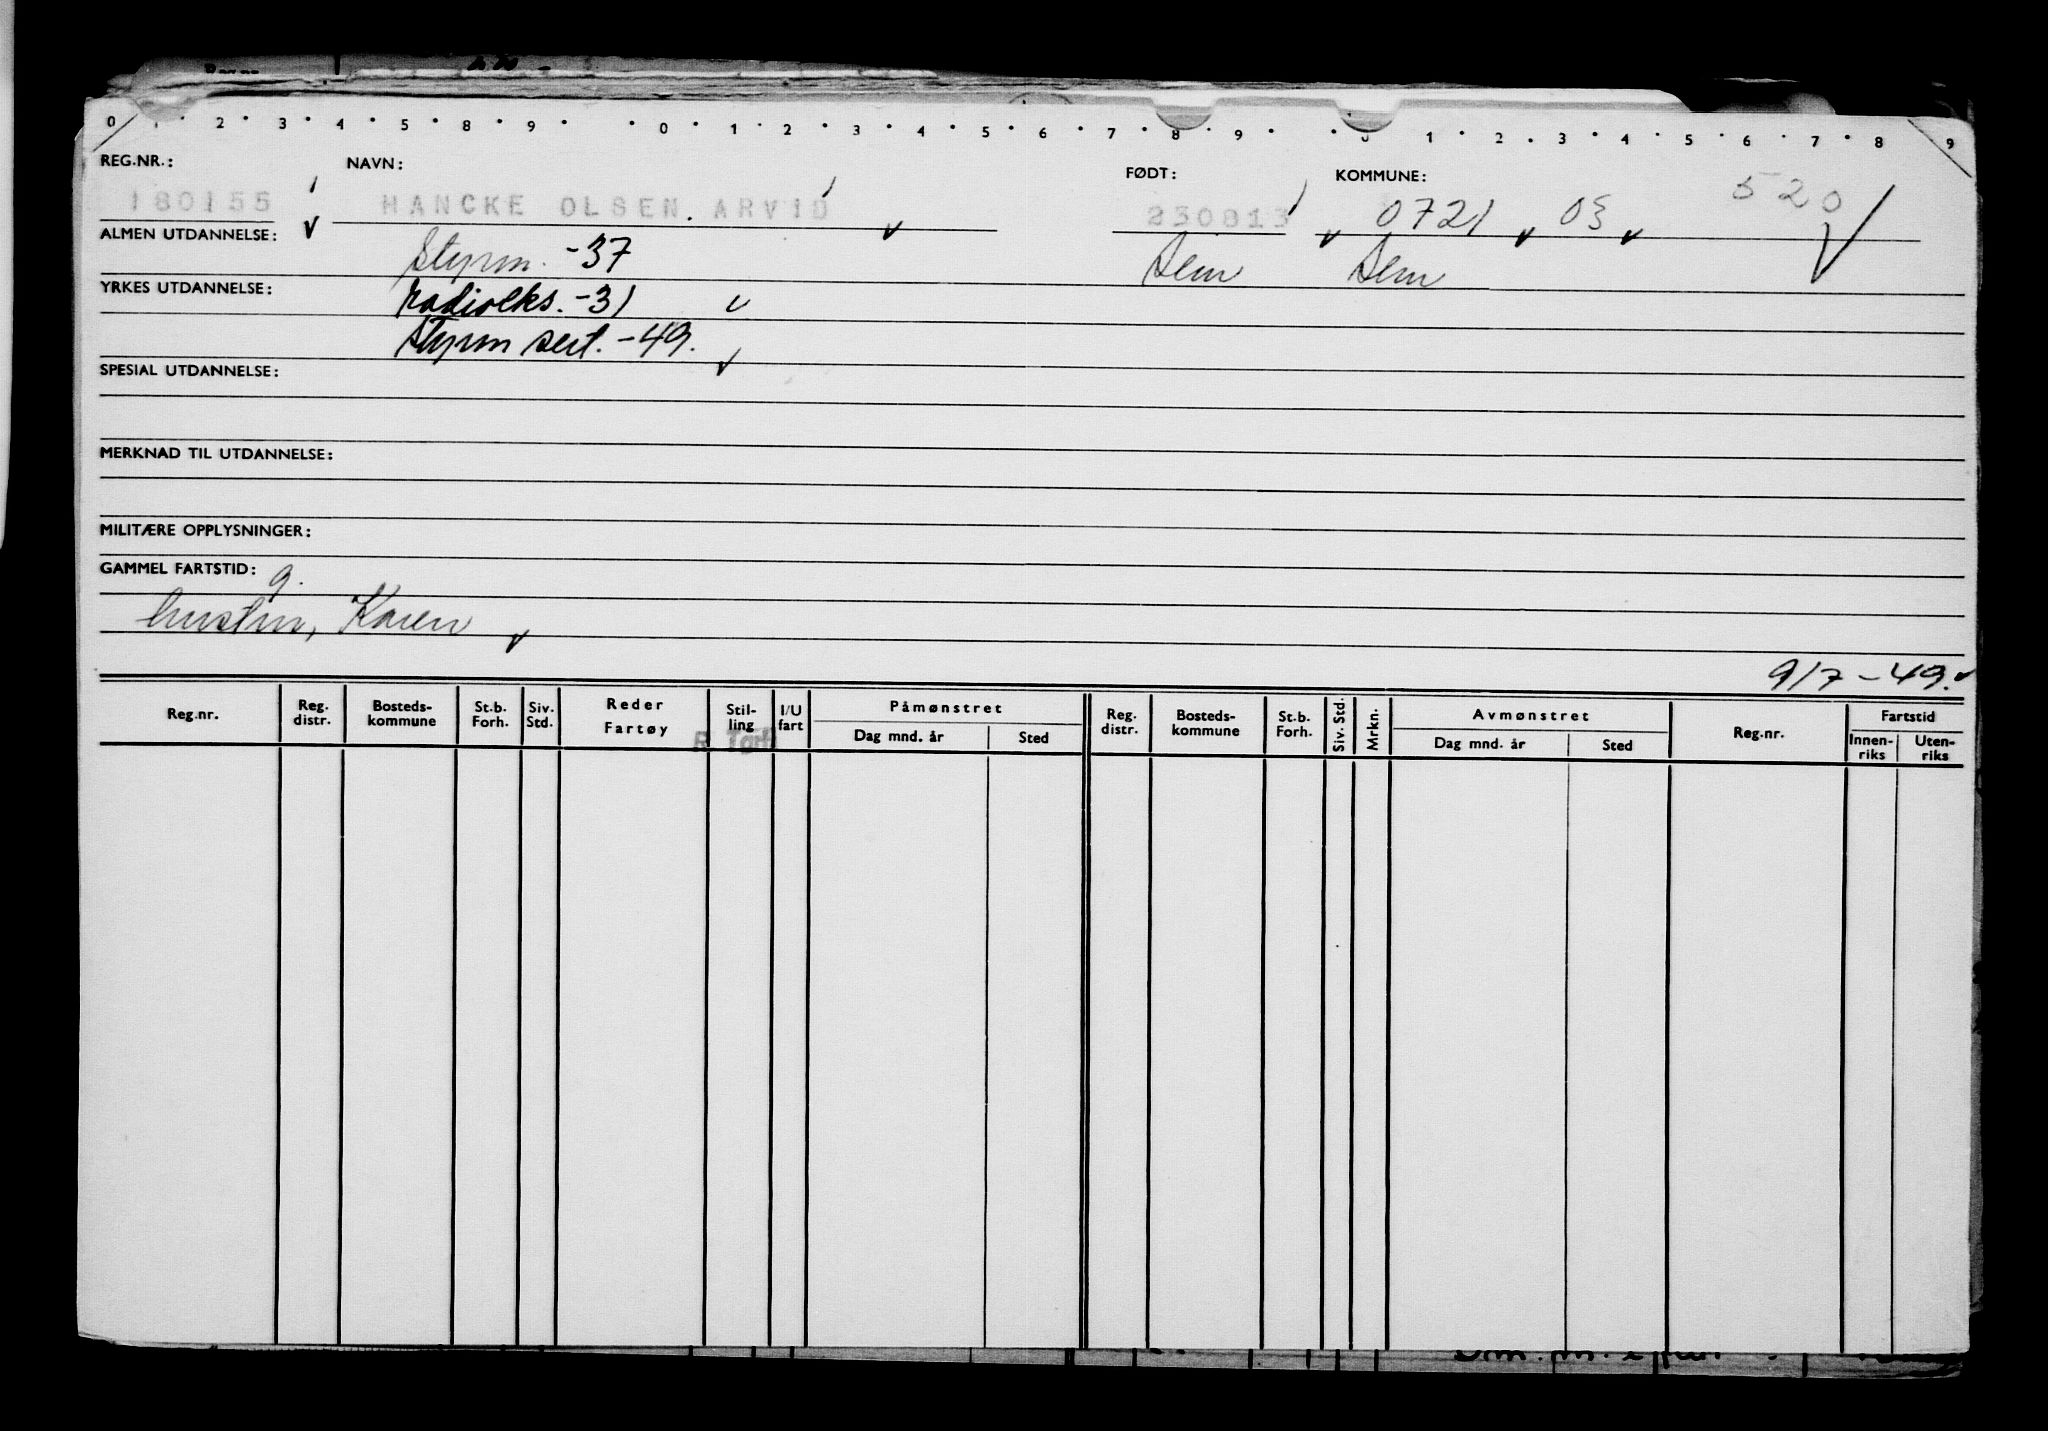 0 1 2 3 4 5 8 9 0 1 2 3 4 5 6 7 8 9 1 2 3 4 5 6 7 8 9
REG.NR.: NAVN: FØDT: KOMMUNE: 520
180155 HANCKE OLSEN. ARVID 250813 0721 03
ALMEN UTDANNELSE: Styrm. -37 Sem Sem
YRKES UTDANNELSE: radioeks. -31
Styrm sert. -49.
SPESIAL UTDANNELSE:
MERKNAD TIL UTDANNELSE:
MILITÆRE OPPLYSNINGER:
GAMMEL FARTSTID:
g.
hustru, Karen
9/7-49.
Reg.nr. Reg. distr. Bosteds-kommune St.b. Forh. Siv. Std. Reder Fartøy Stil-ling I/U fart Påmønstret Dag mnd. år Sted Reg. distr. Bosteds-kommune St.b. Forh. Siv. Std. Mrkn. Avmønstret Dag mnd. år Sted Reg.nr. Fartstid Innen-riks Uten-riks